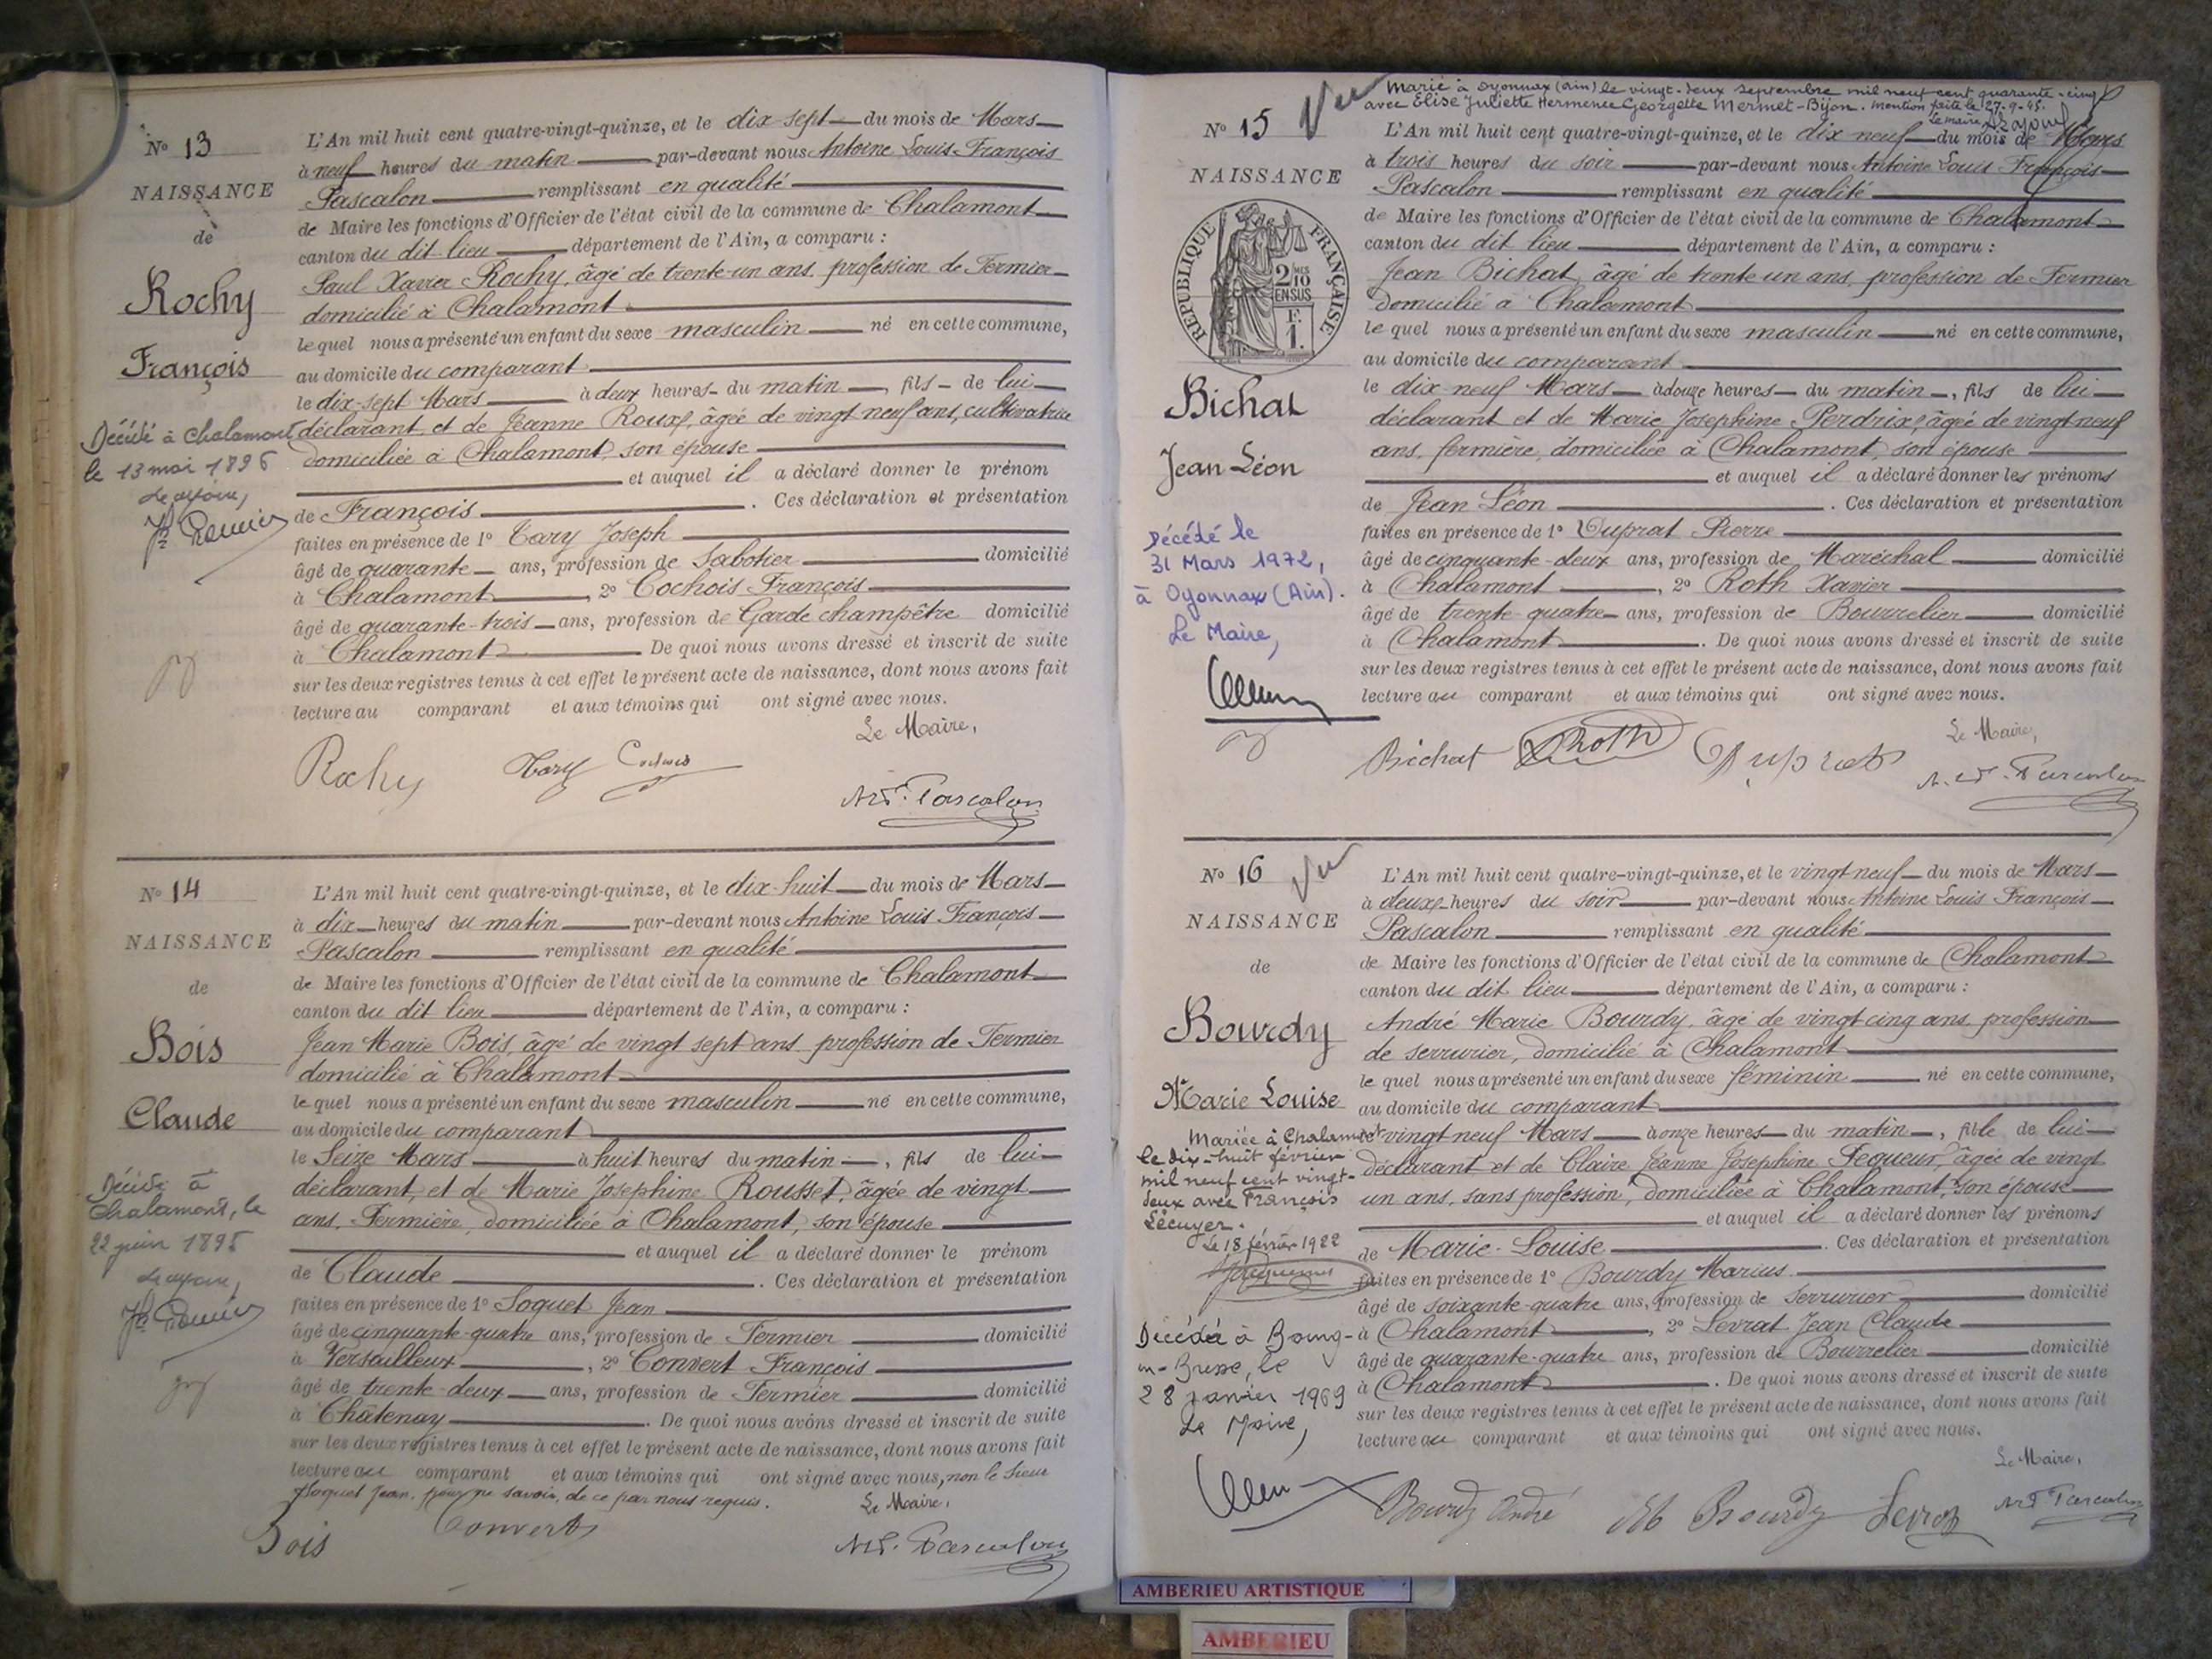 N° 13
NAISSANCE
de
Rochy
François
Décédé à Chalamont
le 13 mai 1896
L'An mil huit cent quatre-vingt-quinze, et le dix-sept du mois de Mars
à neuf heures du matin par-devant nous Antoine Louis François
Pascalon remplissant en qualité
de Maire les fonctions d'Officier de l'état civil de la commune de Chalamont
canton du dit lieu département de l'Ain, a comparu :
Paul Xavier Rochy, âgé de trente-un ans, profession de Fermier
domicilié à Chalamont
le quel nous a présenté un enfant du sexe masculin né en cette commune,
au domicile du comparant
le dix-sept Mars à deux heures du matin, fils de lui
déclarant et de Jeanne Roux, âgée de vingt neuf ans, cultivatrice
domiciliée à Chalamont, son épouse
et auquel il a déclaré donner le prénom
de François. Ces déclaration et présentation
faites en présence de 1° Tary Joseph
âgé de quarante ans, profession de Sabotier domicilié
à Chalamont, 2° Cochois François
âgé de quarante-trois ans, profession de Garde champêtre domicilié
à Chalamont De quoi nous avons dressé et inscrit de suite
sur les deux registres tenus à cet effet le présent acte de naissance, dont nous avons fait
lecture au comparant et aux témoins qui ont signé avec nous.
Le Maire,
Rochy Tary Cochois
A.L.F. Pascalon
N° 14
NAISSANCE
de
Bois
Claude
Décédé à
Chalamont, le
22 juin 1895
L'An mil huit cent quatre-vingt-quinze, et le dix-huit du mois de Mars
à dix heures du matin par-devant nous Antoine Louis François
Pascalon remplissant en qualité
de Maire les fonctions d'Officier de l'état civil de la commune de Chalamont
canton du dit lieu département de l'Ain, a comparu :
Jean Marie Bois, âgé de vingt sept ans profession de Fermier
domicilié à Chalamont
le quel nous a présenté un enfant du sexe masculin né en cette commune,
au domicile du comparant
le Seize Mars à huit heures du matin, fils de lui
déclarant, et de Marie Josephine Rousset, âgée de vingt
ans, Fermière, domiciliée à Chalamont, son épouse
et auquel il a déclaré donner le prénom
de Claude. Ces déclaration et présentation
faites en présence de 1° Soquet Jean
âgé de cinquante-quatre ans, profession de Fermier domicilié
à Versailleux, 2° Convert François
âgé de trente-deux ans, profession de Fermier domicilié
à Châtenay. De quoi nous avons dressé et inscrit de suite
sur les deux registres tenus à cet effet le présent acte de naissance, dont nous avons fait
lecture au comparant et aux témoins qui ont signé avec nous, non le Sieur
Soquet Jean, pour ne savoir, de ce par nous requis.
Le Maire,
Bois Convert
A.L.F. Pascalon
Marié à Oyonnax (Ain) le vingt-deux septembre mil neuf cent quarante-cinq
avec Elise Juliette Hermence Georgette Mermet-Bijon. Mention faite le 27-9-45.
Le maire
N° 15 Vu
NAISSANCE
RÉPUBLIQUE FRANÇAISE
2/10 EN SUS
F. 1.
Bichat
Jean Léon
Décédé le
31 Mars 1972,
à Oyonnax (Ain).
Le Maire,
L'An mil huit cent quatre-vingt-quinze, et le dix neuf du mois de Mars
à trois heures du soir par-devant nous Antoine Louis François
Pascalon remplissant en qualité
de Maire les fonctions d'Officier de l'état civil de la commune de Chalamont
canton du dit lieu département de l'Ain, a comparu :
Jean Bichat, âgé de trente-un ans, profession de Fermier
domicilié à Chalamont
le quel nous a présenté un enfant du sexe masculin né en cette commune,
au domicile du comparant
le dix-neuf Mars à douze heures du matin, fils de lui
déclarant et de Marie Josephine Perdrix, âgée de vingt neuf
ans, fermière, domiciliée à Chalamont, son épouse
et auquel il a déclaré donner les prénoms
de Jean Léon. Ces déclaration et présentation
faites en présence de 1° Duprat Pierre
âgé de cinquante-deux ans, profession de Maréchal domicilié
à Chalamont, 2° Roth Xavier
âgé de trente-quatre ans, profession de Bourrelier domicilié
à Chalamont. De quoi nous avons dressé et inscrit de suite
sur les deux registres tenus à cet effet le présent acte de naissance, dont nous avons fait
lecture au comparant et aux témoins qui ont signé avec nous.
Le Maire,
Bichat Roth Duprat
A.L.F. Pascalon
N° 16 Vu
NAISSANCE
de
Bourdy
Marie Louise
Mariée à Chalamont
le dix-huit février
mil neuf cent vingt-
deux avec François
Lécuyer.
Le 18 février 1922
Décédée à Bourg-
en-Bresse, le
28 janvier 1969
Le Maire,
L'An mil huit cent quatre-vingt-quinze, et le vingt neuf du mois de Mars
à deux heures du soir par-devant nous Antoine Louis François
Pascalon remplissant en qualité
de Maire les fonctions d'Officier de l'état civil de la commune de Chalamont
canton du dit lieu département de l'Ain, a comparu :
André Marie Bourdy, âgé de vingt cinq ans, profession
de serrurier, domicilié à Chalamont
le quel nous a présenté un enfant du sexe féminin né en cette commune,
au domicile du comparant
le vingt neuf Mars à onze heures du matin, fille de lui
déclarant et de Claire Jeanne Josephine Pequeur, âgée de vingt
un ans, sans profession, domiciliée à Chalamont, son épouse
et auquel il a déclaré donner les prénoms
de Marie-Louise. Ces déclaration et présentation
faites en présence de 1° Bourdy Marius
âgé de soixante-quatre ans, profession de Serrurier domicilié
à Chalamont, 2° Levrat Jean Claude
âgé de quarante-quatre ans, profession de Bourrelier domicilié
à Chalamont. De quoi nous avons dressé et inscrit de suite
sur les deux registres tenus à cet effet le présent acte de naissance, dont nous avons fait
lecture au comparant et aux témoins qui ont signé avec nous.
Le Maire,
Bourdy André M Bourdy Levrat
A.L.F. Pascalon
AMBERIEU ARTISTIQUE
AMBERIEU